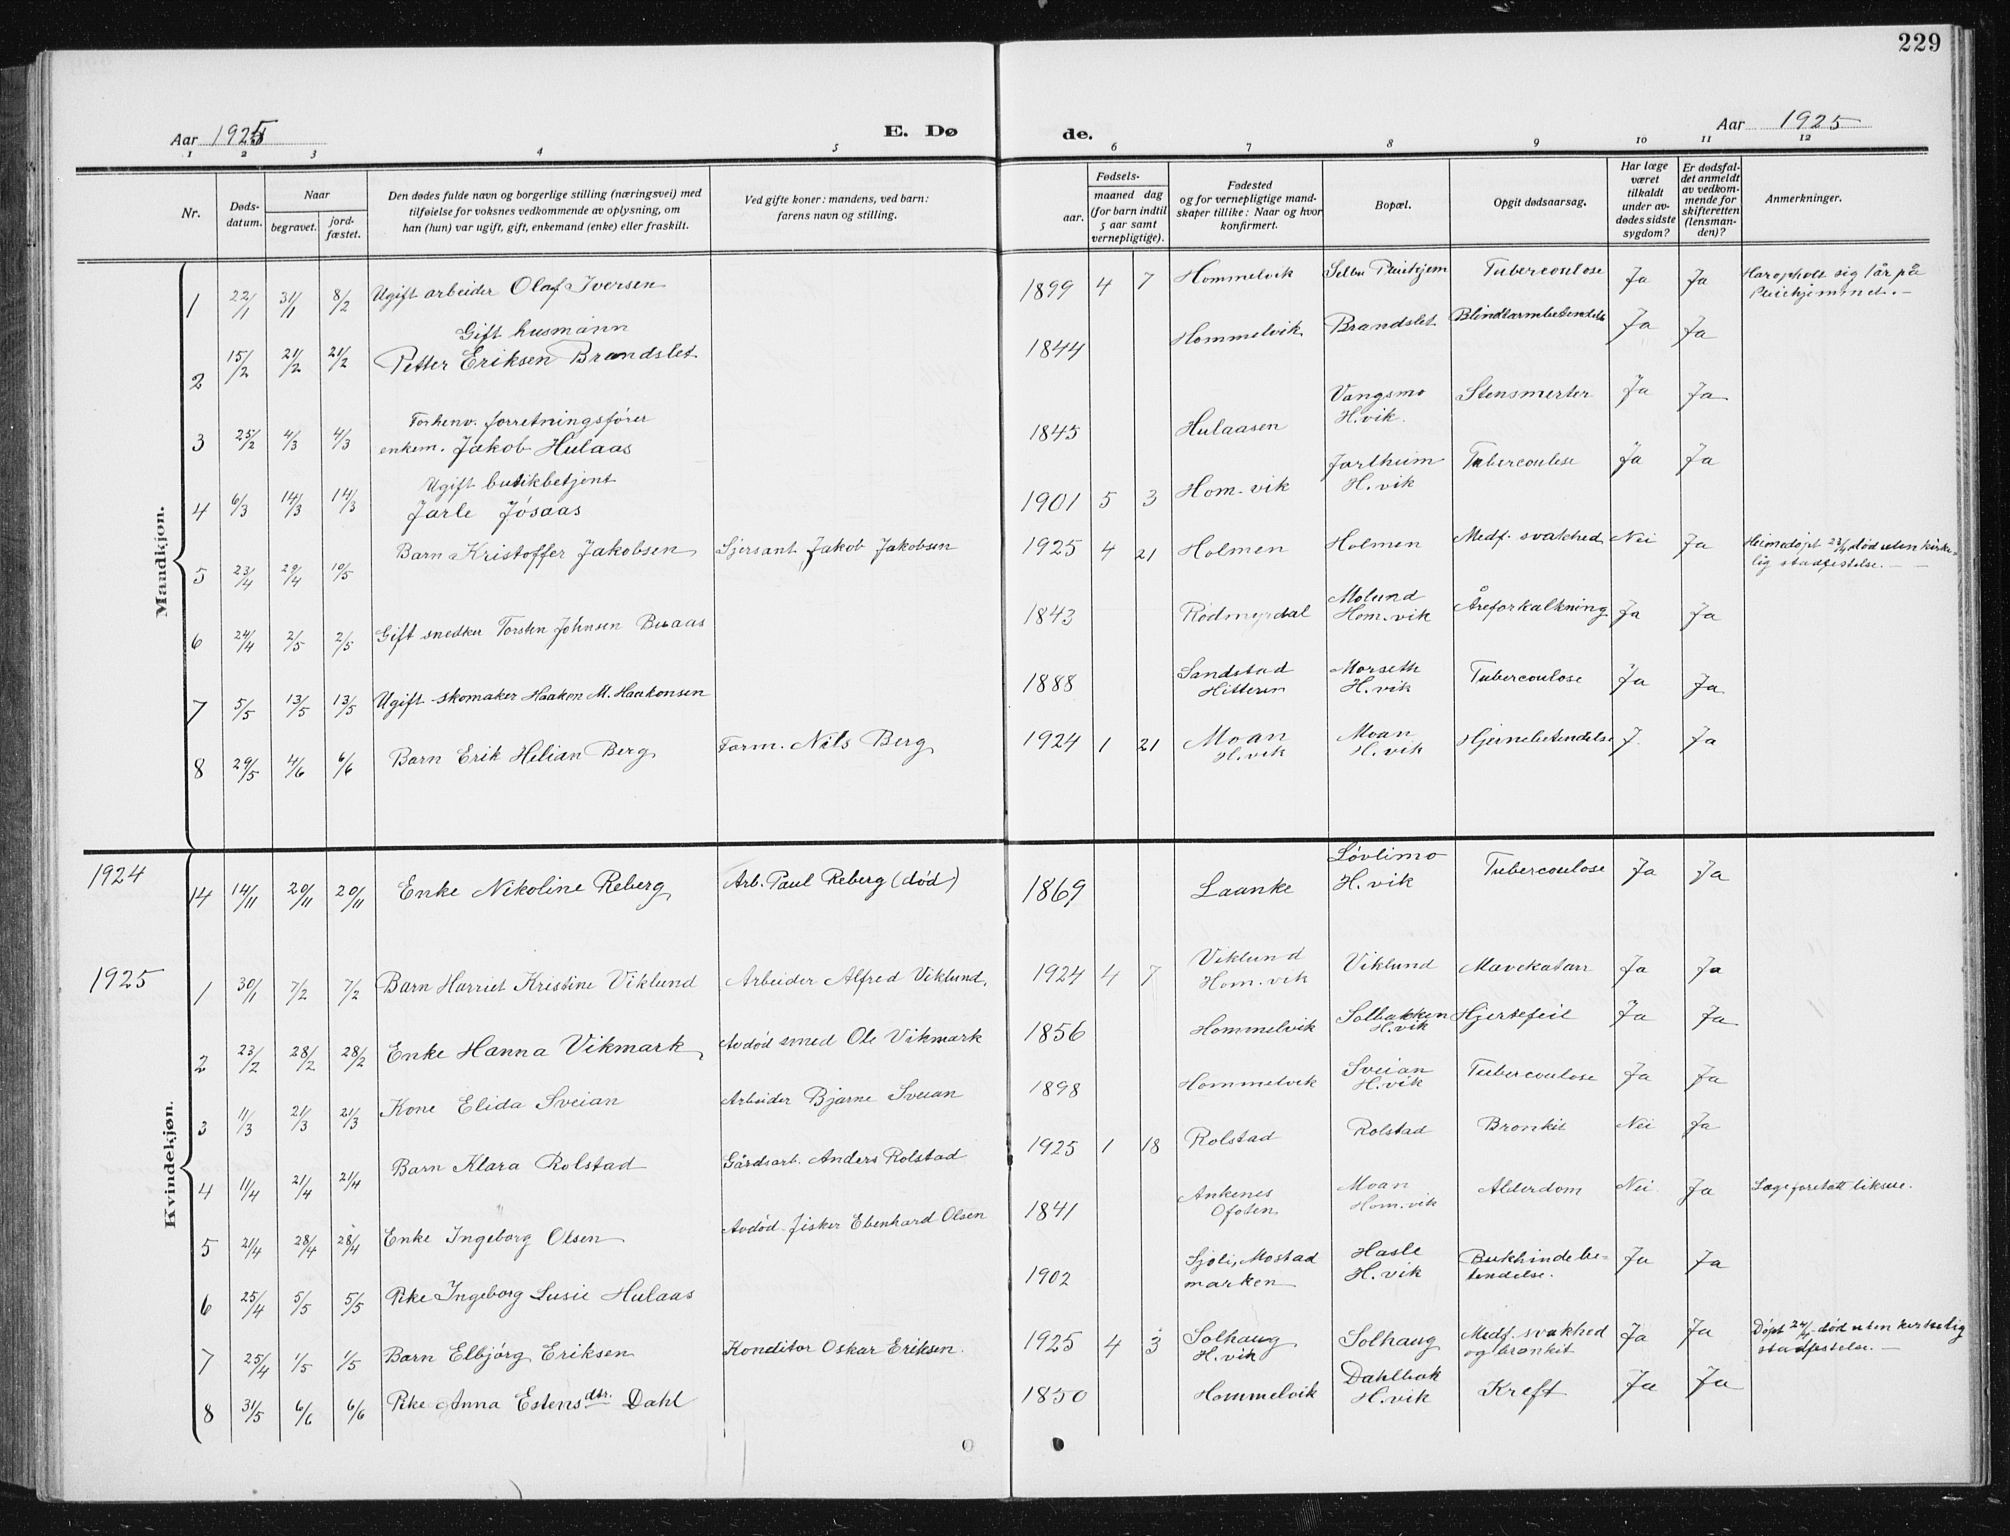 229
Aar 1925 E. Dø de. Aar 1925
1 2 3 4 5 6 7 8 9 10 11 12
Nr. Døds-datum. Naar begravet. jord-fæstet. Den dødes fulde navn og borgerlige stilling (næringsvei) med tilføielse for voksnes vedkommende av oplysning, om han (hun) var ugift, gift, enkemand (enke) eller fraskilt. Ved gifte koner: mandens, ved barn: farens navn og stilling. Fødsels- aar. maaned dag (for barn indtil 5 aar samt vernepligtige). Fødested og for vernepligtige mand-skaper tillike: Naar og hvor konfirmert. Bopæl. Opgit dødsaarsag. Har læge været tilkaldt under av-dødes sidste sygdom? Er dødsfal-det anmeldt av vedkom-mende for skifteretten (lensman-den)? Anmerkninger.
Mandkjøn.
1 22/1 31/1 8/2 Ugift arbeider Olaf Iversen 1899 4 7 Hommelvik Selbu Pleiehjem Tuberculose Ja Ja Har opholt sig 1 år på Pleiehjemmet. —
2 15/2 21/2 21/2 Gift husmann Petter Eriksen Brandslet 1844 Hommelvik Brandslet Blindtarmbetendelse Ja Ja
3 25/2 4/3 4/3 Forhenv. forretningsfører enkem. Jakob Hulaas 1845 Hulaasen Vangsmo H.vik. Stensmerter Ja Ja
4 6/3 14/3 14/3 Ugift butikbetjent Jarle Jøsaas 1901 5 3 Hom.vik Jarlheim H.vik Tubercoulose Ja Ja
5 23/4 29/4 10/5 Barn Kristoffer Jakobsen Sjersant Jakob Jakobsen 1925 4 21 Holmen Holmen Medf. svakhed Nei Ja Heimedøpt 23/4 død uten kirke-lig stadfestelse. —
6 24/4 2/5 2/5 Gift snedker Torsten Johnsen 1843 Rødmyrdal Molund Hom.vik Åreforkalkning Ja Ja
7 5/5 13/5 13/5 Ugift skomaker Haaken M. Haakonsen 1888 Sandstad Hitteren Morseth H.vik Tubercoulose Ja Ja
8 29/5 4/6 6/6 Barn Erik Helian Berg Form. Nils Berg 1924 1 21 Moan H.vik Moan H.vik Hjernebetendelse J. Ja
Kvindekjøn.
1924
14 14/11 20/11 20/11 Enke Nikoline Reberg Arb. Paul Reberg (død) 1869 Laanke Løvlimo H.vik Tubercoulose Ja Ja
1925
1 30/1 7/2 7/2 Barn Harriet Kristine Viklund Arbeider Alfred Viklund. 1924 4 7 Viklund Hom.vik Viklund Mavekatarr Ja Ja
2 23/2 28/2 28/2 Enke Hanna Vikmark Avdød smed Ole Vikmark 1856 Hommelvik Solbakken H.vik Hjertefeil Ja Ja
3 11/3 21/3 21/3 Kone Elida Sveian Arbeider Bjarne Sveian 1898 Hommelvik Sveian H.vik Tubercoulose Ja Ja
4 11/4 21/4 21/4 Barn Klara Rolstad Gårdsarb. Anders Rolstad 1925 1 18 Rolstad Rolstad Bronkit Nei Ja
5 21/4 28/4 28/4 Enke Ingeborg Olsen Avdød fisker Ebenhard Olsen 1841 Ankenes Ofoten Moan Hom.vik Alderdom Nei Ja Læge foretatt liksue.
6 25/4 5/5 5/5 Pike Ingeborg Susie Hulaas 1902 Sjøli, Mostad marken Hasle H.vik Bukhindebe-tendelse. Ja Ja
7 25/4 1/5 1/5 Barn Elbjørg Eriksen Konditor Oskar Eriksen. 1925 4 3 Solhaug H.vik Solhaug Medf. svakhed og bronkit Ja Ja Døpt 24/4 død uten kirkelig stadfestelse. —
8 31/5 6/6 6/6 Pike Anna Estensdtr. Dahl 1850 Hommelvik Dahlbak H.vik Kreft Ja Ja